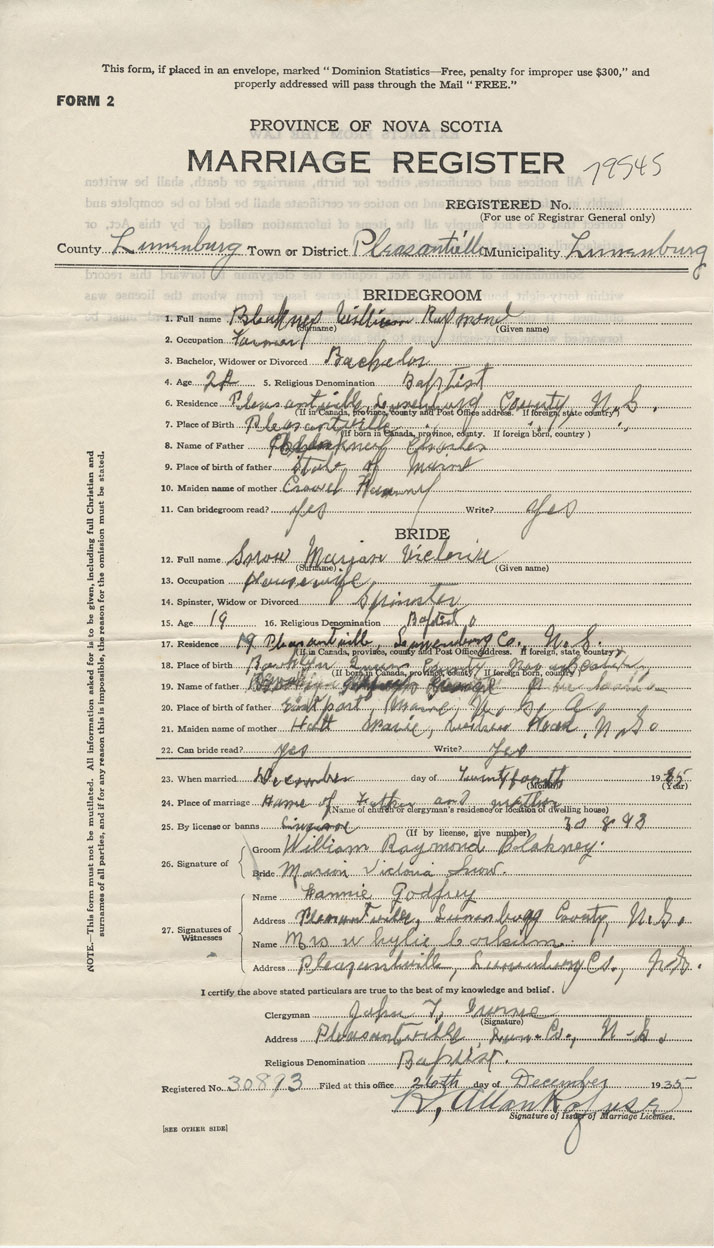 This form, if placed in an envelope, marked "Dominion Statistics—Free, penalty for improper use $300," and
properly addressed will pass through the Mail "FREE."
FORM 2
PROVINCE OF NOVA SCOTIA
MARRIAGE REGISTER 79545
REGISTERED No.
(For use of Registrar General only)
County Lunenburg Town or District Pleasantville Municipality Lunenburg
BRIDEGROOM
1. Full name Blakney William Raymond
(Surname) (Given name)
2. Occupation Farmer
3. Bachelor, Widower or Divorced Bachelor
4. Age 5. Religious Denomination Baptist
6. Residence Pleasantville, Lunenburg County, N.S.
(If in Canada, province, county and Post Office address. If foreign, state country)
7. Place of Birth Pleasantville
(If born in Canada, province, county. If foreign born, country)
8. Name of Father Charles
9. Place of birth of father State of Maine
10. Maiden name of mother
11. Can bridegroom read? Yes Write? Yes
BRIDE
12. Full name Snow Marian Victoria
(Surname) (Given name)
13. Occupation Housewife
14. Spinster, Widow or Divorced Spinster
15. Age 19 16. Religious Denomination Baptist
17. Residence Pleasantville, Lunenburg Co. N.S.
(If in Canada, province, county and Post Office address. If foreign, state country)
18. Place of birth Queens County, Nova Scotia
(If born in Canada, province, county. If foreign born, country)
19. Name of father
20. Place of birth of father Eastport, Maine, U.S.A.
21. Maiden name of mother Marie, N.S.
22. Can bride read? yes Write? Yes
23. When married December day of 1935
(Month) (Year)
24. Place of marriage Home of Father and mother
(Name of church or clergyman's residence or location of dwelling house)
25. By license or banns License 30893
(If by license, give number)
26. Signature of
Groom William Raymond Blakney.
Bride Marion Victoria Snow.
27. Signatures of Witnesses
Name Godfrey
Address Pleasantville, Lunenburg County, N.S.
Name Mrs Wylie
Address Pleasantville, Lunenburg Co., N.S.
I certify the above stated particulars are true to the best of my knowledge and belief.
Clergyman John T.
(Signature)
Address Pleasantville Lun. Co., N.S.
Religious Denomination Baptist.
Registered No. 30893 Filed at this office 26th day of December 1935
R. Allan
Signature of Issuer of Marriage Licenses.
[SEE OTHER SIDE]
NOTE.—This form must not be mutilated. All information asked for is to be given, including full Christian and
surnames of all parties, and if for any reason this is impossible, the reason for the omission must be stated.